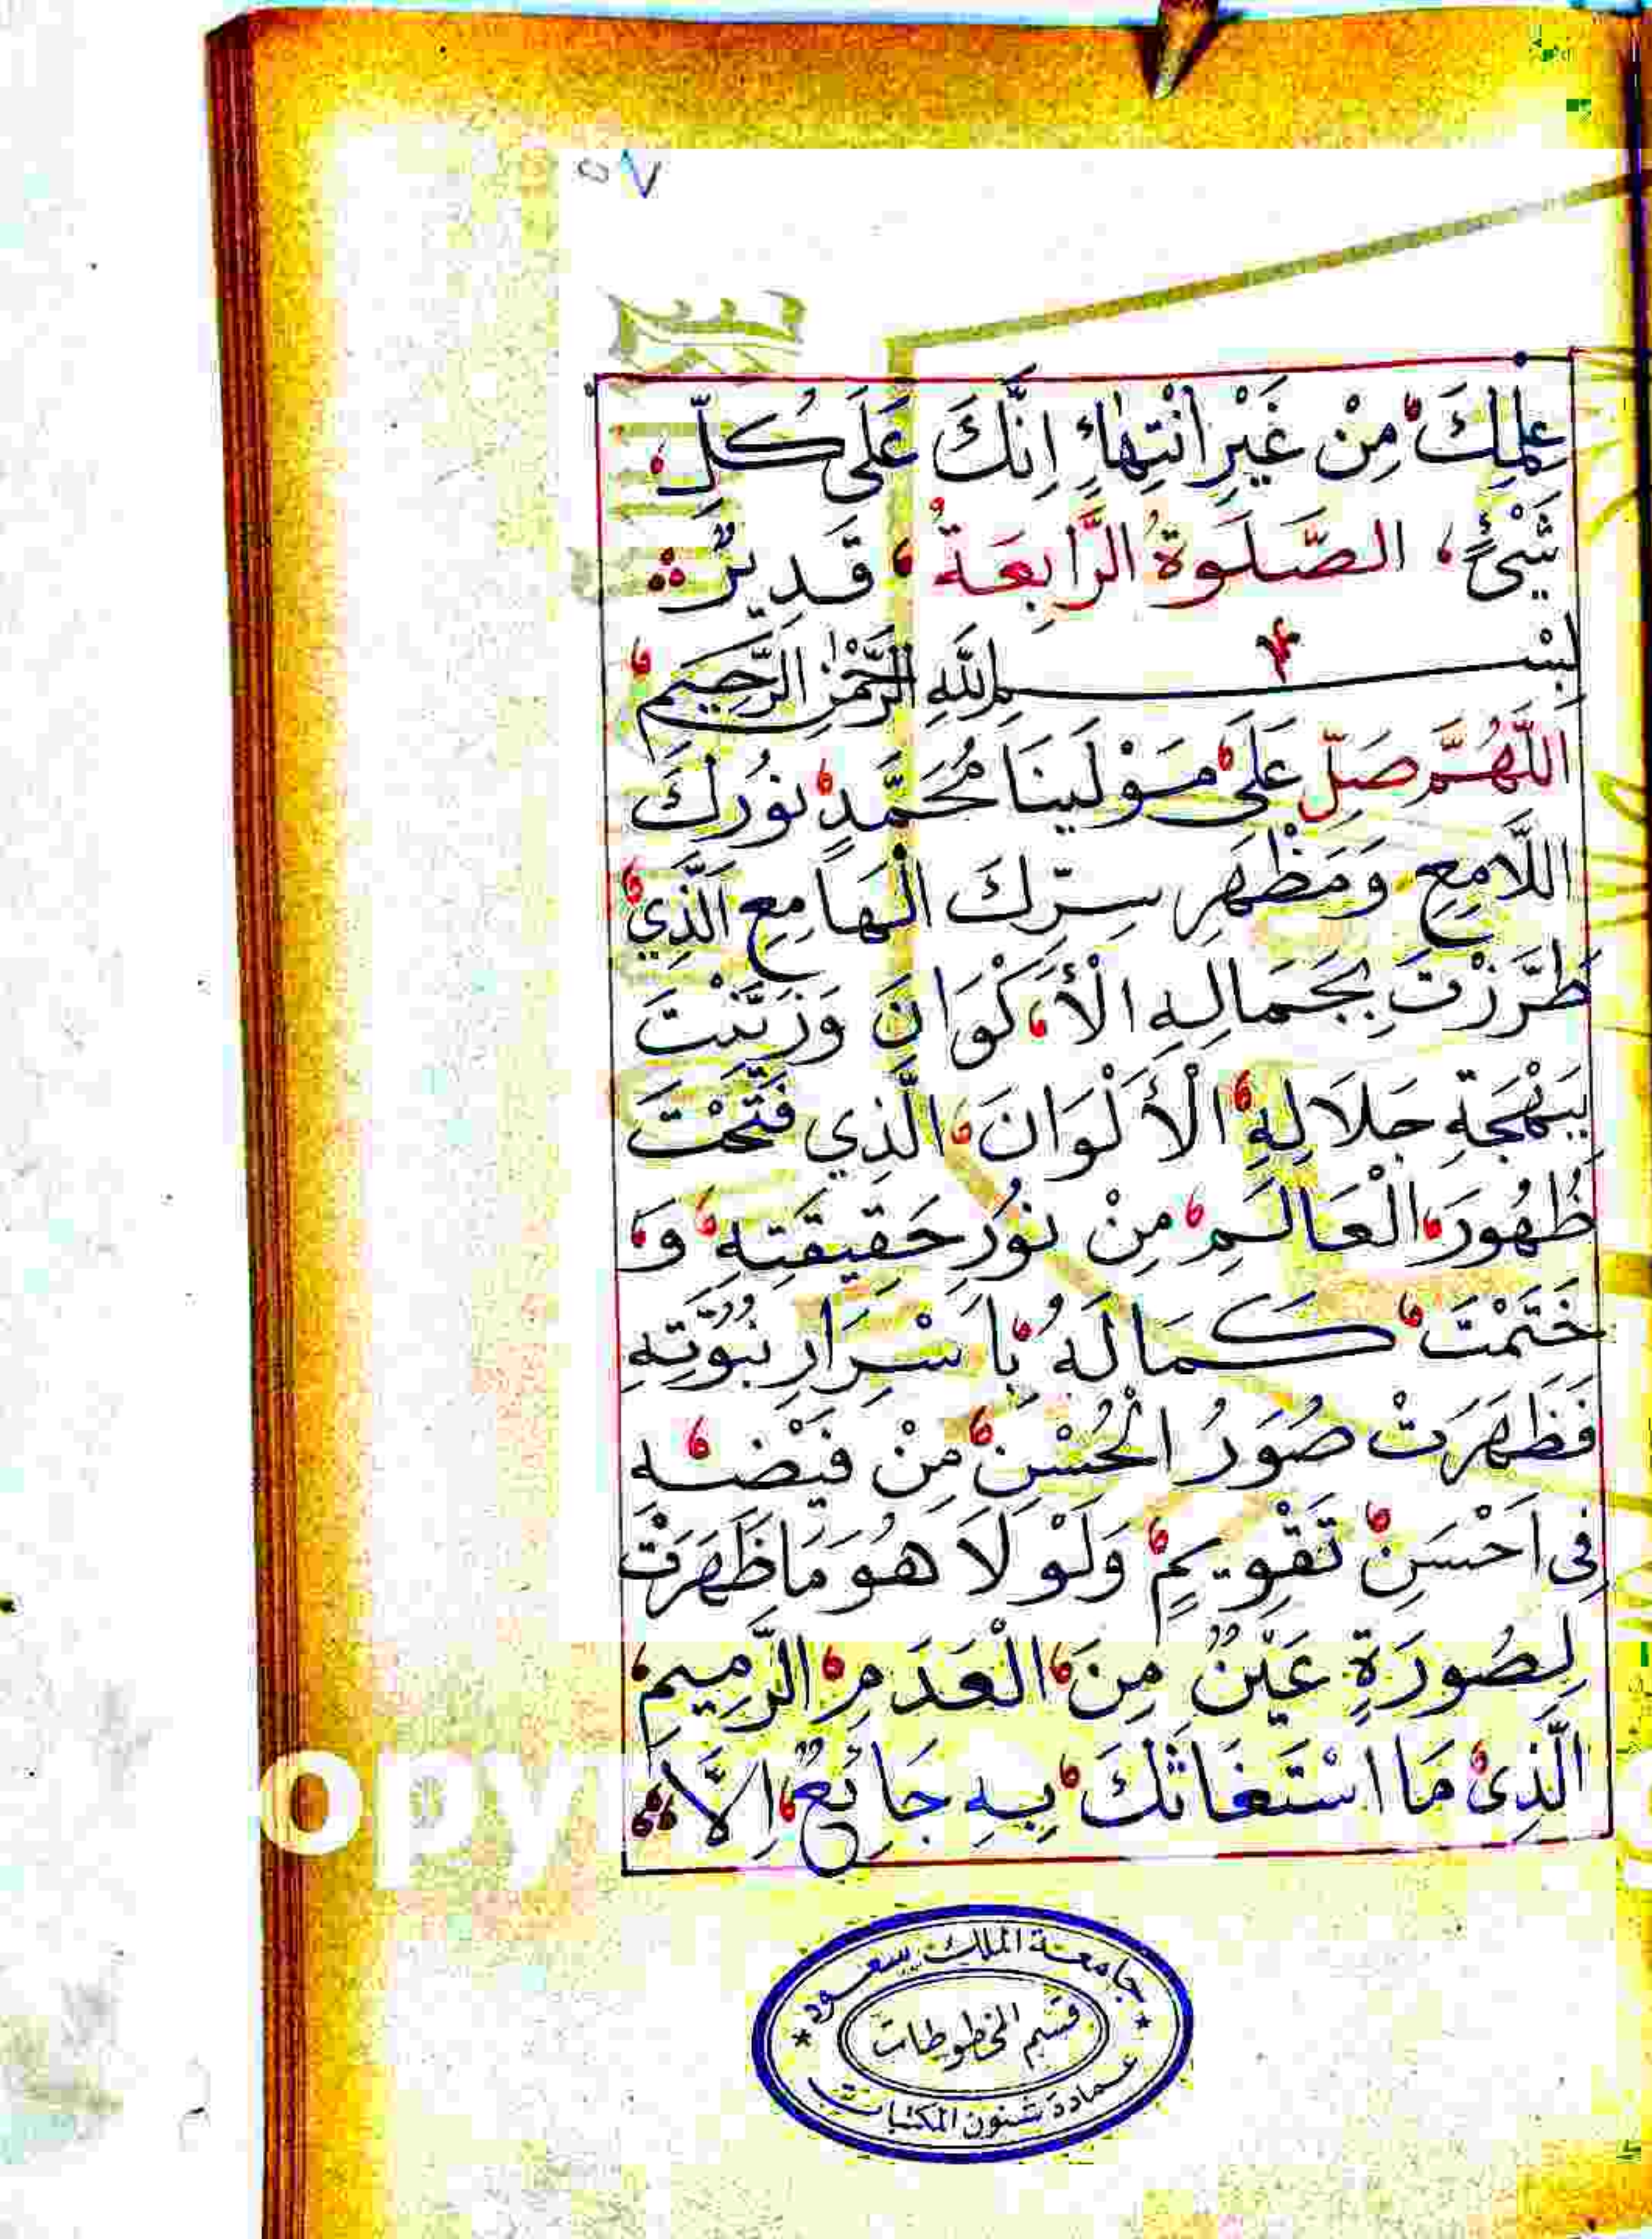 ٥٧
عِلْمِكَ مِنْ غَيْرِ انْتِهَاءٍ اِنَّكَ عَلَى كُلِّ
شَيْئٍ، الصَّلَوةُ الرَّابِعَةُ، قَدِيرٌ
بِسْمِ اللَّهِ الرَّحْمٰنِ الرَّحِيمِ
اللّٰهُمَّ صَلِّ عَلَى مَوْلَينَا مُحَمَّدٍ نُورِكَ
اللَّامِعِ وَمَظْهَرِ سِرِّكَ الْهَامِعِ الَّذِي
طَرَّزْتَ بِجَمَالِهِ الْأَكْوَانَ وَزَيَّنْتَ
بِبَهْجَةِ جَلَالِهِ الْأَلْوَانَ، الَّذِي فَتَحْتَ
ظُهُورَ الْعَالَمِ مِنْ نُورِ حَقِيقَتِهِ وَ
خَتَمْتَ كَمَالَهُ بِاَسْرَارِ نُبُوَّتِهِ
فَظَهَرَتْ صُوَرُ الْحُسْنِ مِنْ فَيْضِهِ
فِى اَحْسَنِ تَقْوِيمٍ وَلَوْلَا هُوَ مَا ظَهَرَتْ
لِصُورَةٍ عَيْنٌ مِنَ الْعَدَمِ الرَّمِيمِ
الَّذِى مَا اسْتَغَاثَكَ بِهِ جَائِعٌ اِلَّا
جامعة الملك سعود
قسم المخطوطات
عمادة شئون المكتبات
OPY